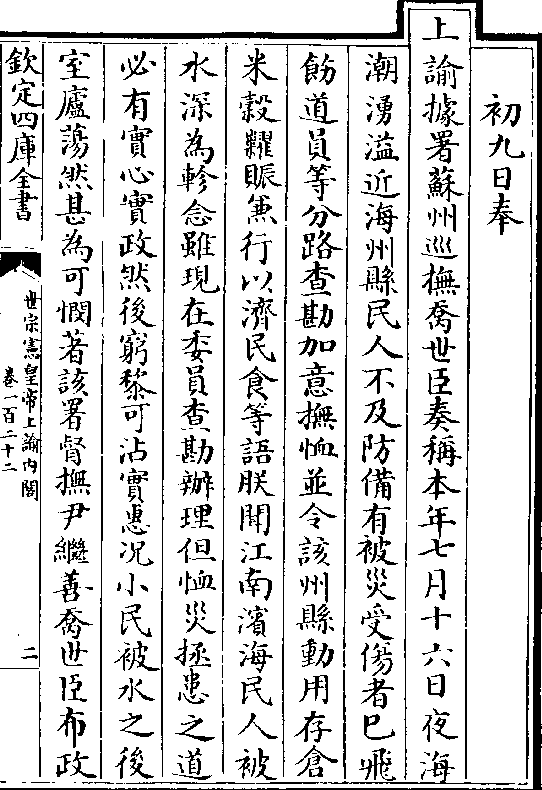 初九日奉
上諭據署蘇州巡撫喬世臣奏稱本年七月十六日夜海
潮湧溢近海州縣民人不及防備有被災受傷者已飛
飭道員等分路查勘加意撫恤並令該州縣動用存倉
米穀糶賑兼行以濟民食等語朕聞江南濱海民人被
水深為軫念雖現在委員查勘辦理但恤災拯患之道
必有實心實政然後窮黎可沾實惠况小民被水之後
室廬蕩然甚為可憫著該署督撫尹繼善喬世臣布政
欽定四庫全書
世宗憲皇帝上諭內閣
卷一百二十二
二